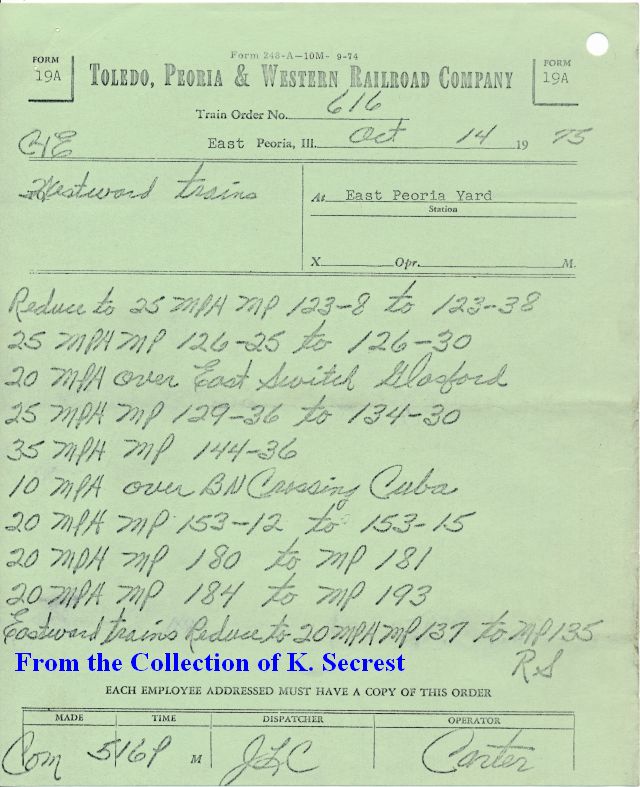 Form 248-A—10M- 9-74
FORM 19A
TOLEDO, PEORIA & WESTERN RAILROAD COMPANY
FORM 19A
Train Order No. 616
East Peoria, Ill. Oct 14 19 75
C&E
Westward trains
At East Peoria Yard
Station
X Opr. M.
Reduce to 25 MPH MP 123-8 to 123-38
25 MPH MP 126-25 to 126-30
20 MPH over East Switch Glasford
25 MPH MP 129-36 to 134-30
35 MPH MP 144-36
10 MPH over BN Crossing Cuba
20 MPH MP 153-12 to 153-15
20 MPH MP 180 to MP 181
20 MPH MP 184 to MP 193
Eastward trains Reduce to 20 MPH MP 137 to MP 135
From the Collection of K. Secrest
RS
EACH EMPLOYEE ADDRESSED MUST HAVE A COPY OF THIS ORDER
MADE TIME DISPATCHER OPERATOR
Com 516P M JLC Carter